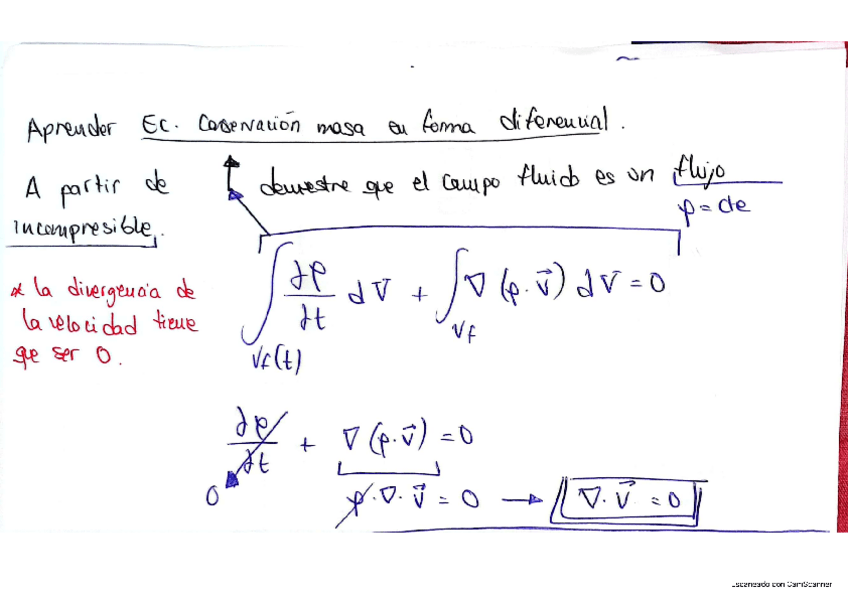 Aprender Ec. Conservación masa en forma diferencial.
A partir de demuestre que el campo fluido es un flujo
ρ = cte
incompresible.
* la divergencia de
la velocidad tiene
que ser 0.
∫ ∂ρ/∂t dV + ∫ ∇ (ρ·v⃗) dV = 0
Vf(t) Vf
∂ρ/∂t + ∇ (ρ·v⃗) = 0
0 ρ·∇·v⃗ = 0 → ∇·v⃗ = 0
Escaneado con CamScanner